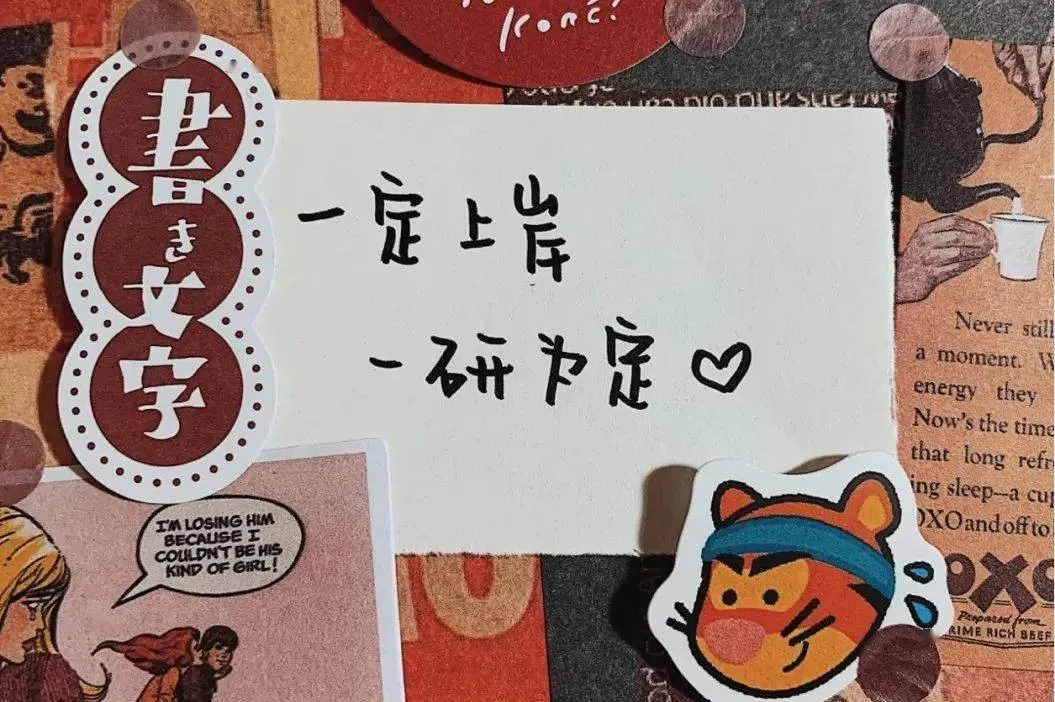 書き文字
一定上岸
一研为定
I'M LOSING HIM
BECAUSE I
COULDN'T BE HIS
KIND OF GIRL!
Never still
a moment.
energy they
Now's the time
that long
ing sleep—a
OXO and off to
OXO
Prepared from
PRIME RICH BEEF